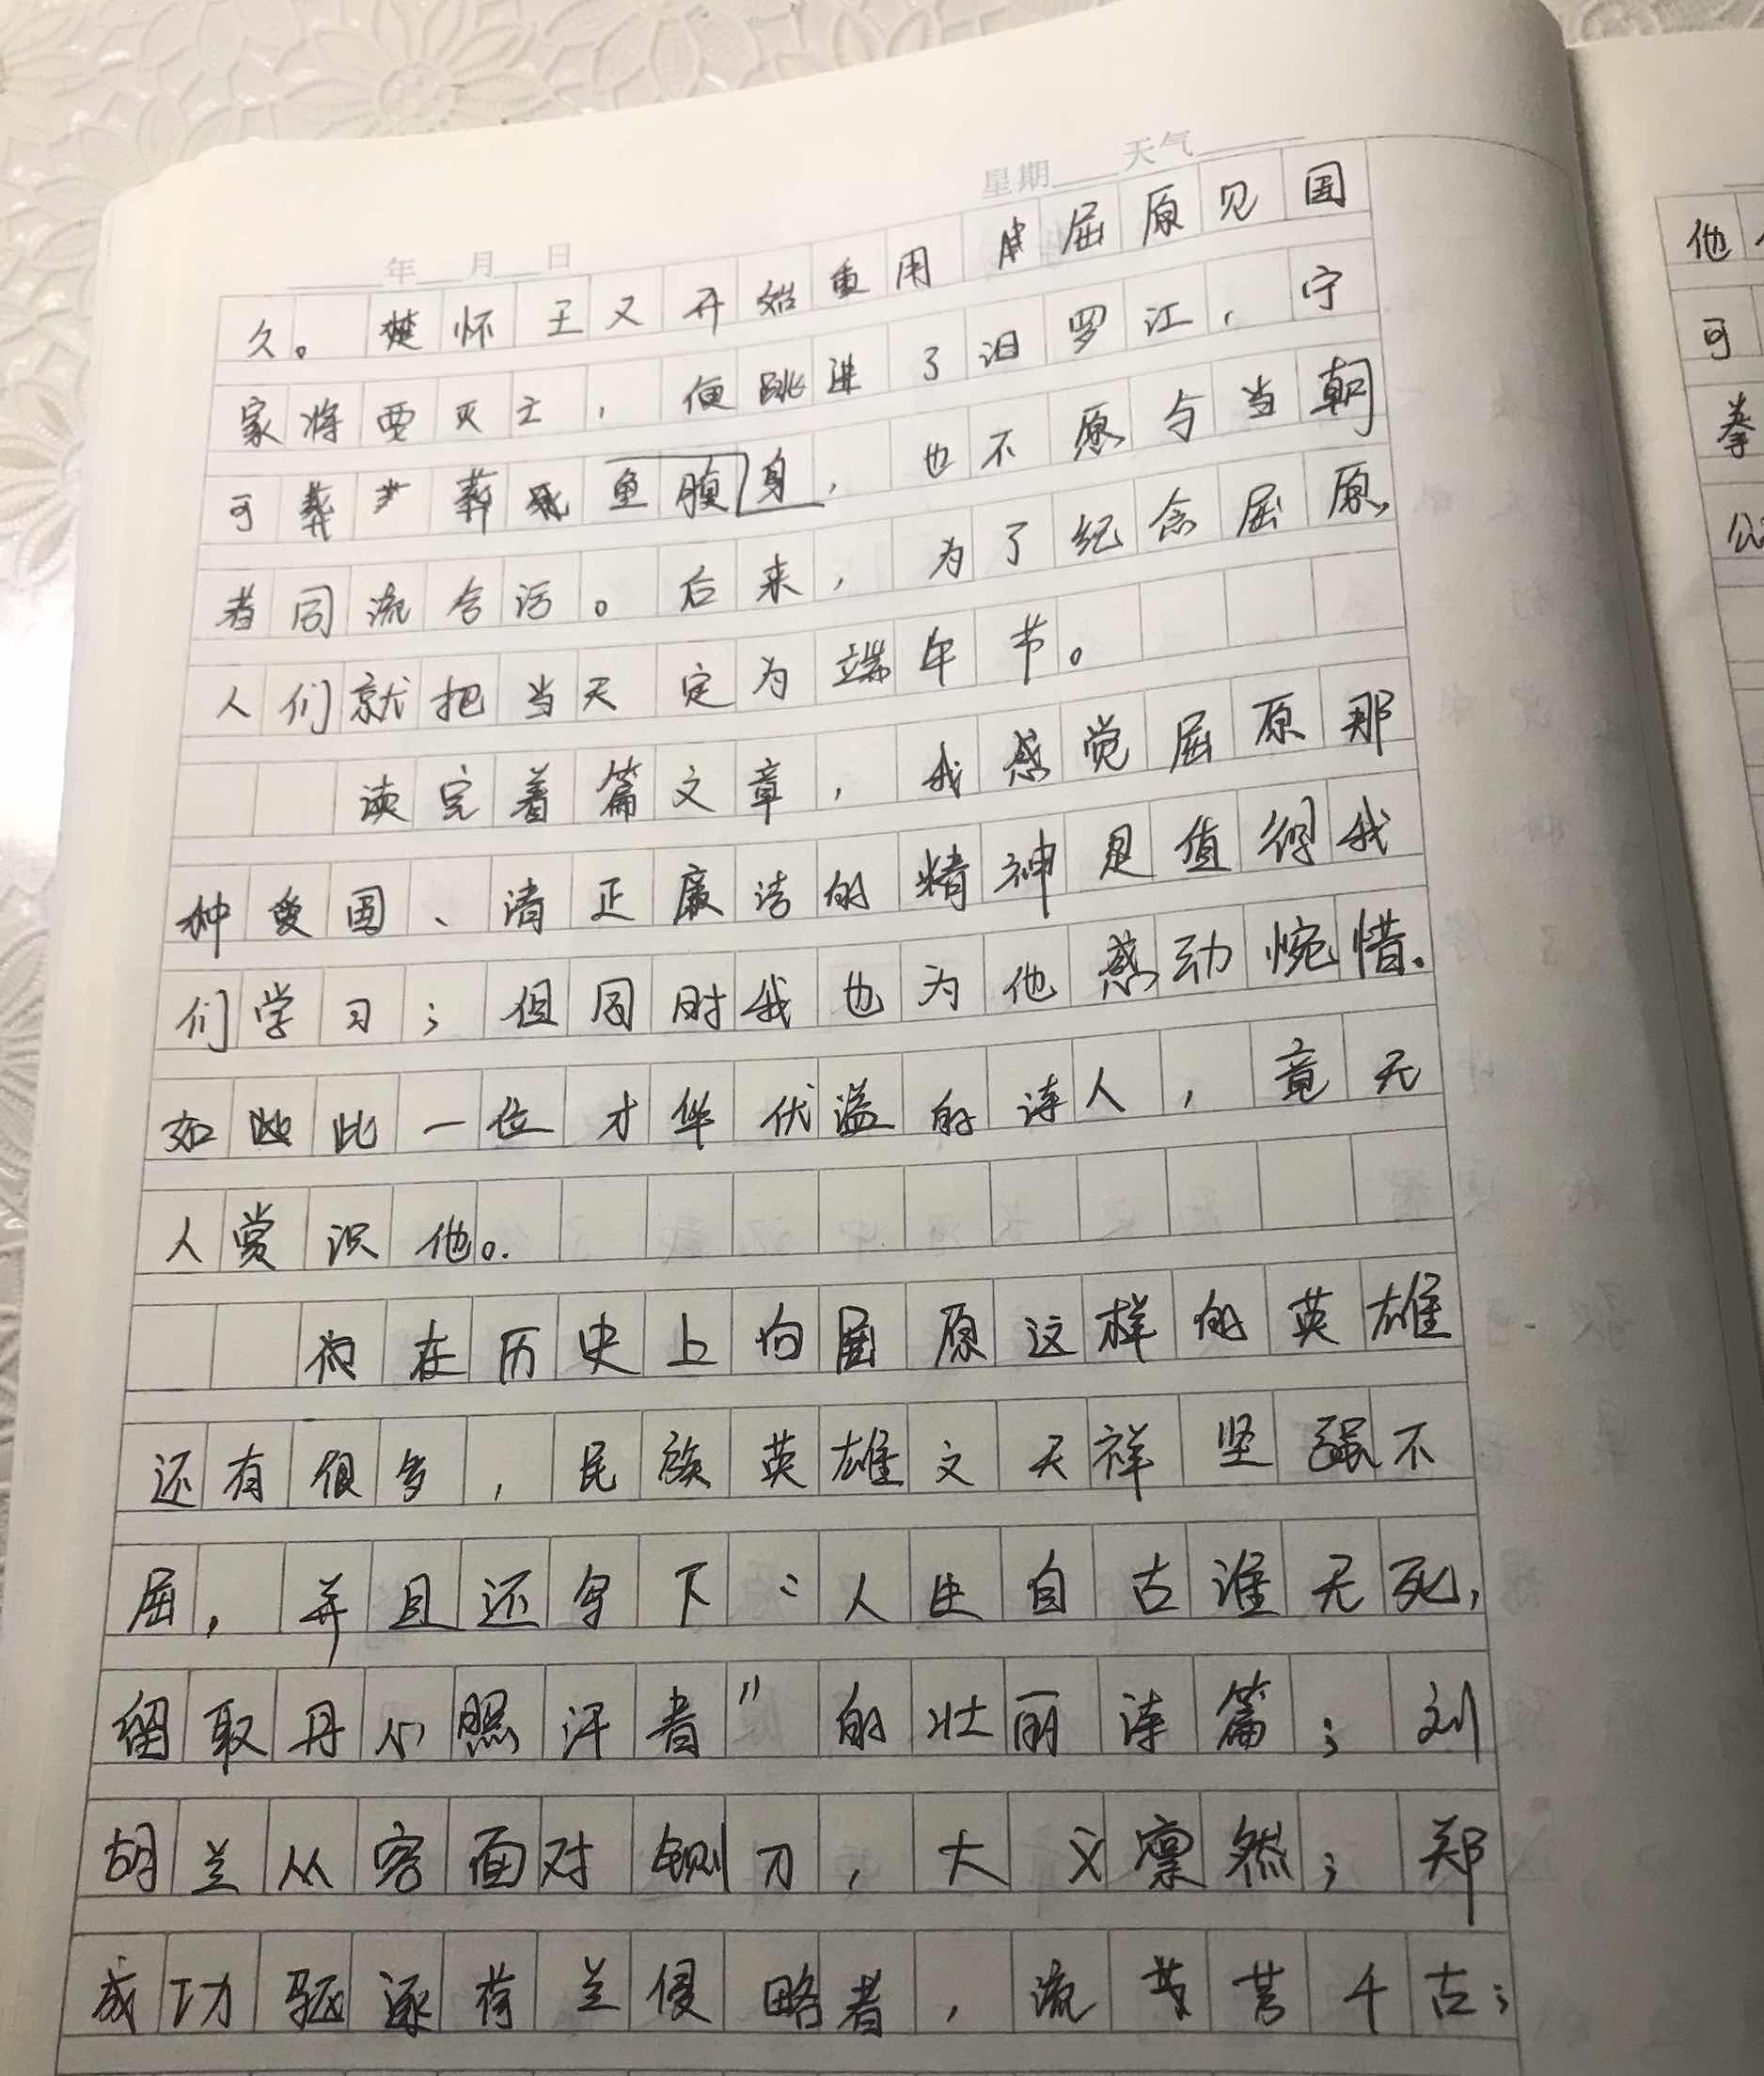 年 月 日 星期 天气
久。楚怀王又开始重用 屈原见国
家将要灭亡，便跳进了汨罗江，宁
可葬 葬 鱼腹身，也不愿与当朝
者同流合污。后来，为了纪念屈原，
人们就把当天定为端午节。
读完着篇文章，我感觉屈原那
种爱国、清正廉洁的精神是值得我
们学习；但同时我也为他感动惋惜。
如此一位才华伏溢的诗人，竟无
人赏识他。
而在历史上向屈原这样的英雄
还有很多，民族英雄文天祥坚强不
屈，并且还写下“人生自古谁无死，
留取丹心照汗青”的壮丽诗篇；刘
胡兰从容面对铡刀，大义凛然；郑
成功驱逐荷兰侵略者，流 芳千古；
他
可
拳
公